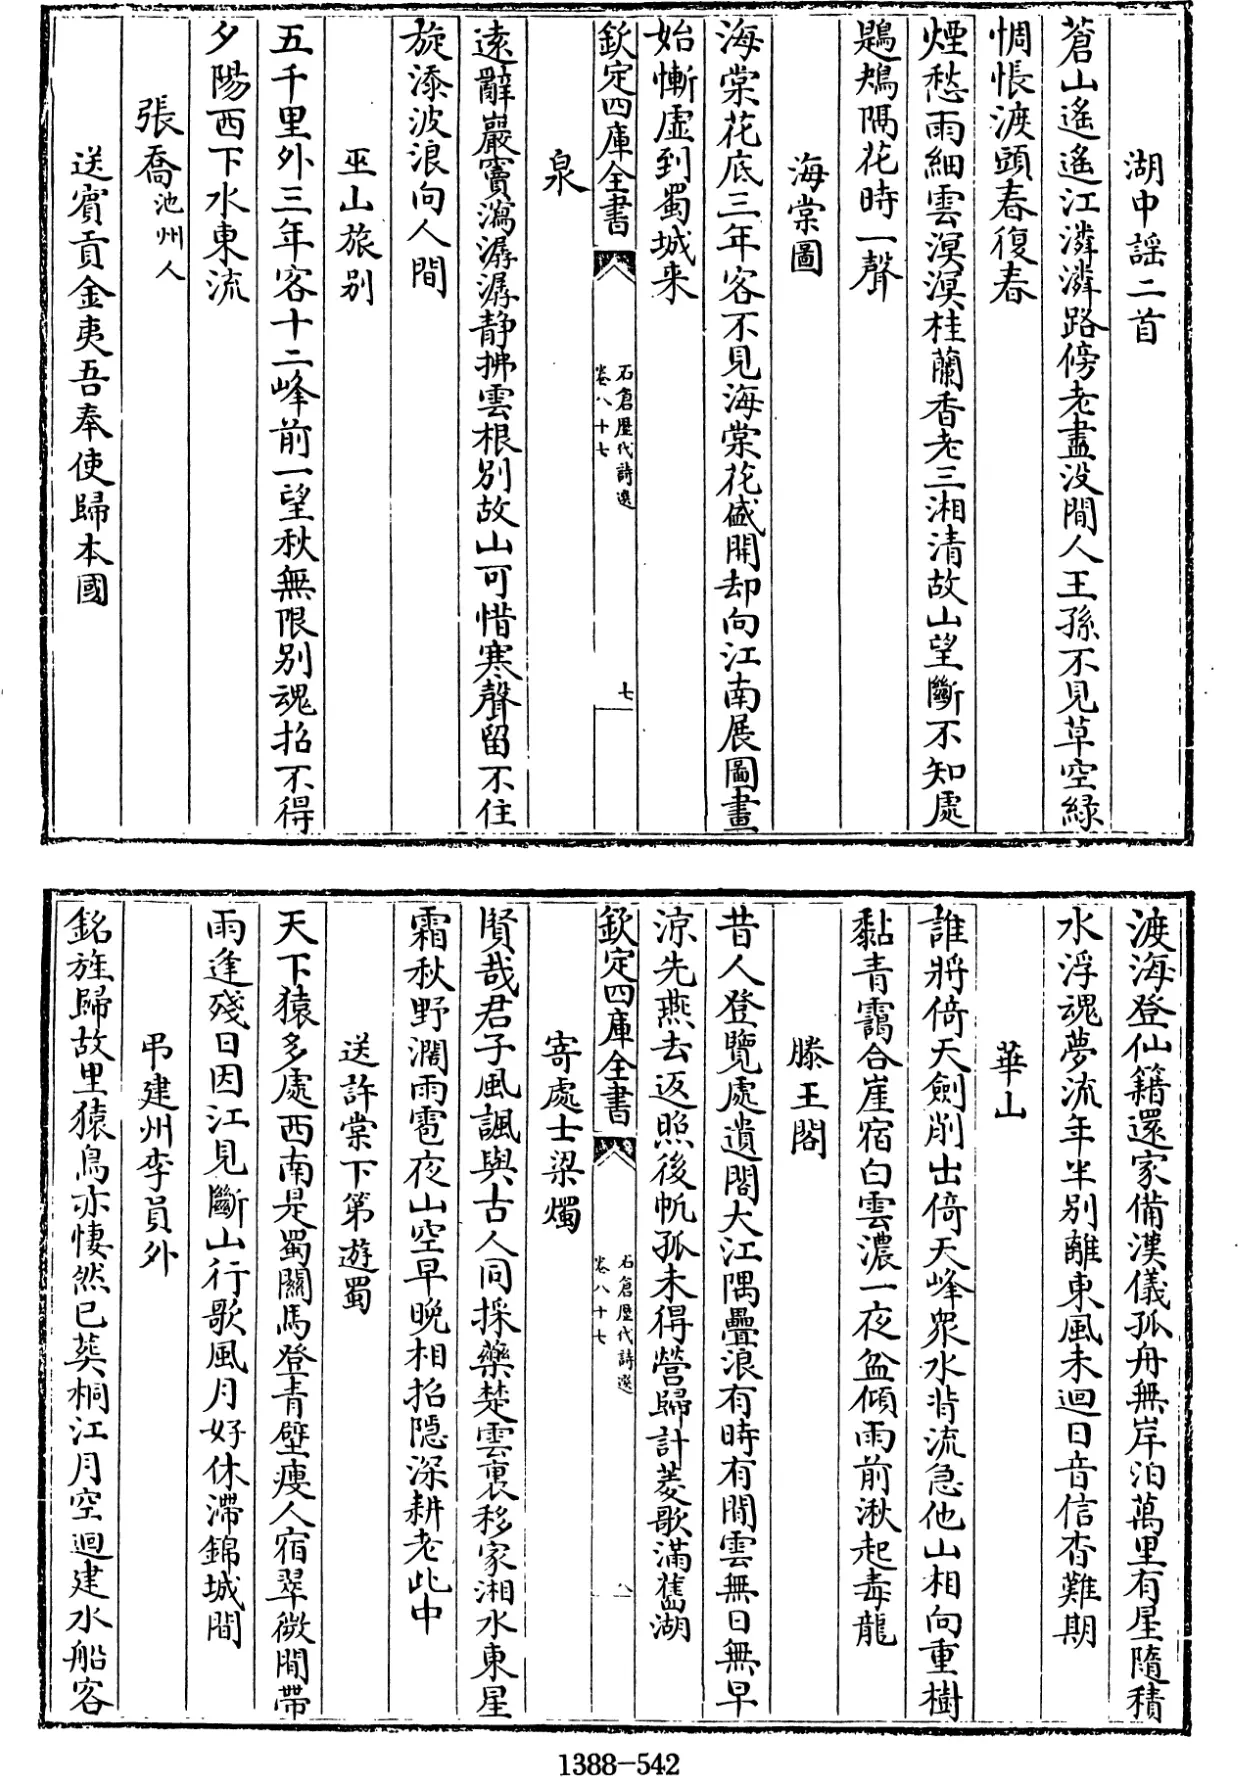 湖中謡二首
蒼山遙遙江潾潾路傍老盡没閒人王孫不見草空緑
惆悵渡頭春復春
煙愁雨細雲溟溟桂蘭香老三湘清故山望斷不知處
鶗鴂隔花時一聲
海棠圖
海棠花底三年客不見海棠花盛開却向江南展圖畫
始慚虚到蜀城来
欽定四庫全書
石倉歷代詩選
卷八十七
七
泉
遠辭巖竇瀉潺潺静拂雲根別故山可惜寒聲留不住
旋添波浪向人間
巫山旅別
五千里外三年客十二峰前一望秋無限別魂招不得
夕陽西下水東流
張喬池州人
送賓貢金夷吾奉使歸本國
渡海登仙籍還家備漢儀孤舟無岸泊萬里有星隨積
水浮魂夢流年半別離東風未迴日音信杳難期
華山
誰將倚天劍削出倚天峰衆水背流急他山相向重樹
黏青靄合崖宿白雲濃一夜盆傾雨前湫起毒龍
滕王閣
昔人登覽處遺閣大江隅疊浪有時有閒雲無日無早
涼先燕去返照後帆孤未得營歸計菱歌滿舊湖
欽定四庫全書
石倉歷代詩選
卷八十七
八
寄處士梁燭
賢哉君子風諷與古人同採藥楚雲裏移家湘水東星
霜秋野濶雨雹夜山空早晩相招隠深耕老此中
送許棠下第遊蜀
天下猿多處西南是蜀關馬登青壁瘦人宿翠微閒帶
雨逢殘日因江見斷山行歌風月好休滯錦城間
弔建州李員外
銘旌歸故里猿鳥亦悽然已葬桐江月空迴建水船客
1388-542